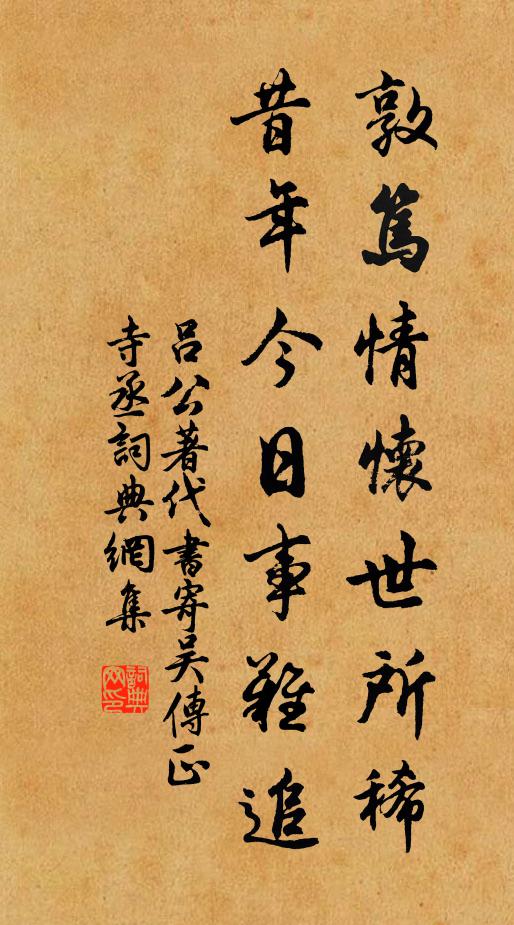 敦篤情懷世所稀
昔年今日事難追
呂公著代書寄吴傳正
寺丞詞典網集
詞典
网印